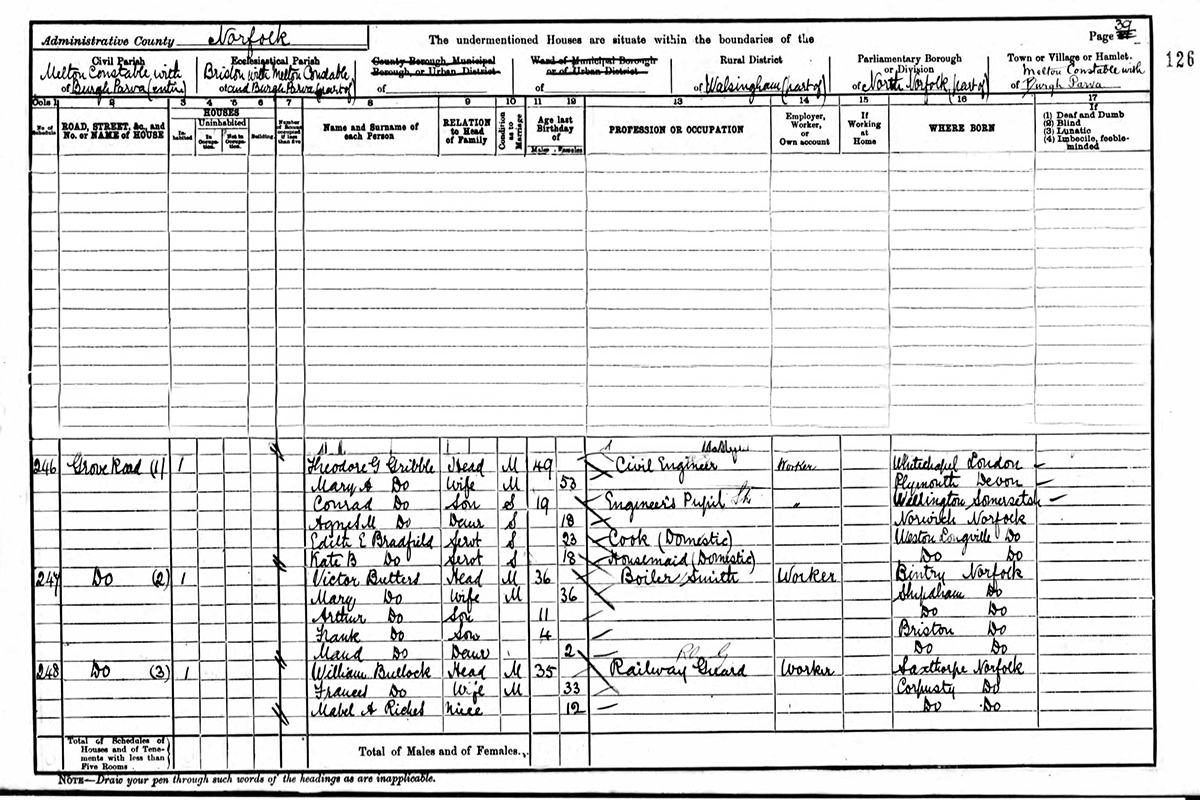 Administrative County Norfolk
The undermentioned Houses are situate within the boundaries of the
Page 39
126
Civil Parish
of Melton Constable with Burgh Parva (entire)
Ecclesiastical Parish
of Briston with Melton Constable and Burgh Parva (part of)
County Borough, Municipal Borough, or Urban District
of
Ward of Municipal Borough or of Urban District
of
Rural District
of Walsingham (part of)
Parliamentary Borough or Division
of North Norfolk (part of)
Town or Village or Hamlet.
of Melton Constable with Burgh Parva
Cols 1 2 3 4 5 6 7 8 9 10 11 12 13 14 15 16 17
No. of Schedule
ROAD, STREET, &c., and No. or NAME of HOUSE
HOUSES
Inhabited
Uninhabited
In Occupation.
Not in Occupation.
Building
Number of Rooms occupied if less than five
Name and Surname of each Person
RELATION to Head of Family
Condition as to Marriage
Age last Birthday of
Males Females
PROFESSION OR OCCUPATION
Employer, Worker, or Own account
If Working at Home
WHERE BORN
If
(1) Deaf and Dumb
(2) Blind
(3) Lunatic
(4) Imbecile, feeble-minded
246 Grove Road (1) 1 Theodore G Gribble Head M 49 Civil Engineer Worker Whitechapel London
Mary A Do Wife M 53 Plymouth Devon
Conrad Do Son S 19 Engineer's Pupil " Wellington Somersetsh
Agnes M Do Daur S 18 Norwich Norfolk
Edith E Bradfield Servt S 23 Cook (Domestic) Weston Longville Do
Kate B Do Servt S 18 Housemaid (Domestic) Do Do
247 Do (2) 1 Victor Butters Head M 36 Boiler Smith Worker Bintry Norfolk
Mary Do Wife M 36 Shipdham Do
Arthur Do Son 11 Do Do
Frank Do Son 4 Briston Do
Maud Do Daur 2 Do Do
248 Do (3) 1 William Bullock Head M 35 Railway Guard Worker Saxthorpe Norfolk
Frances Do Wife M 33 Corpusty Do
Mabel A Riches Niece 12 Do Do
Total of Schedules of Houses and of Tenements with less than Five Rooms
Total of Males and of Females..
NOTE—Draw your pen through such words of the headings as are inapplicable.